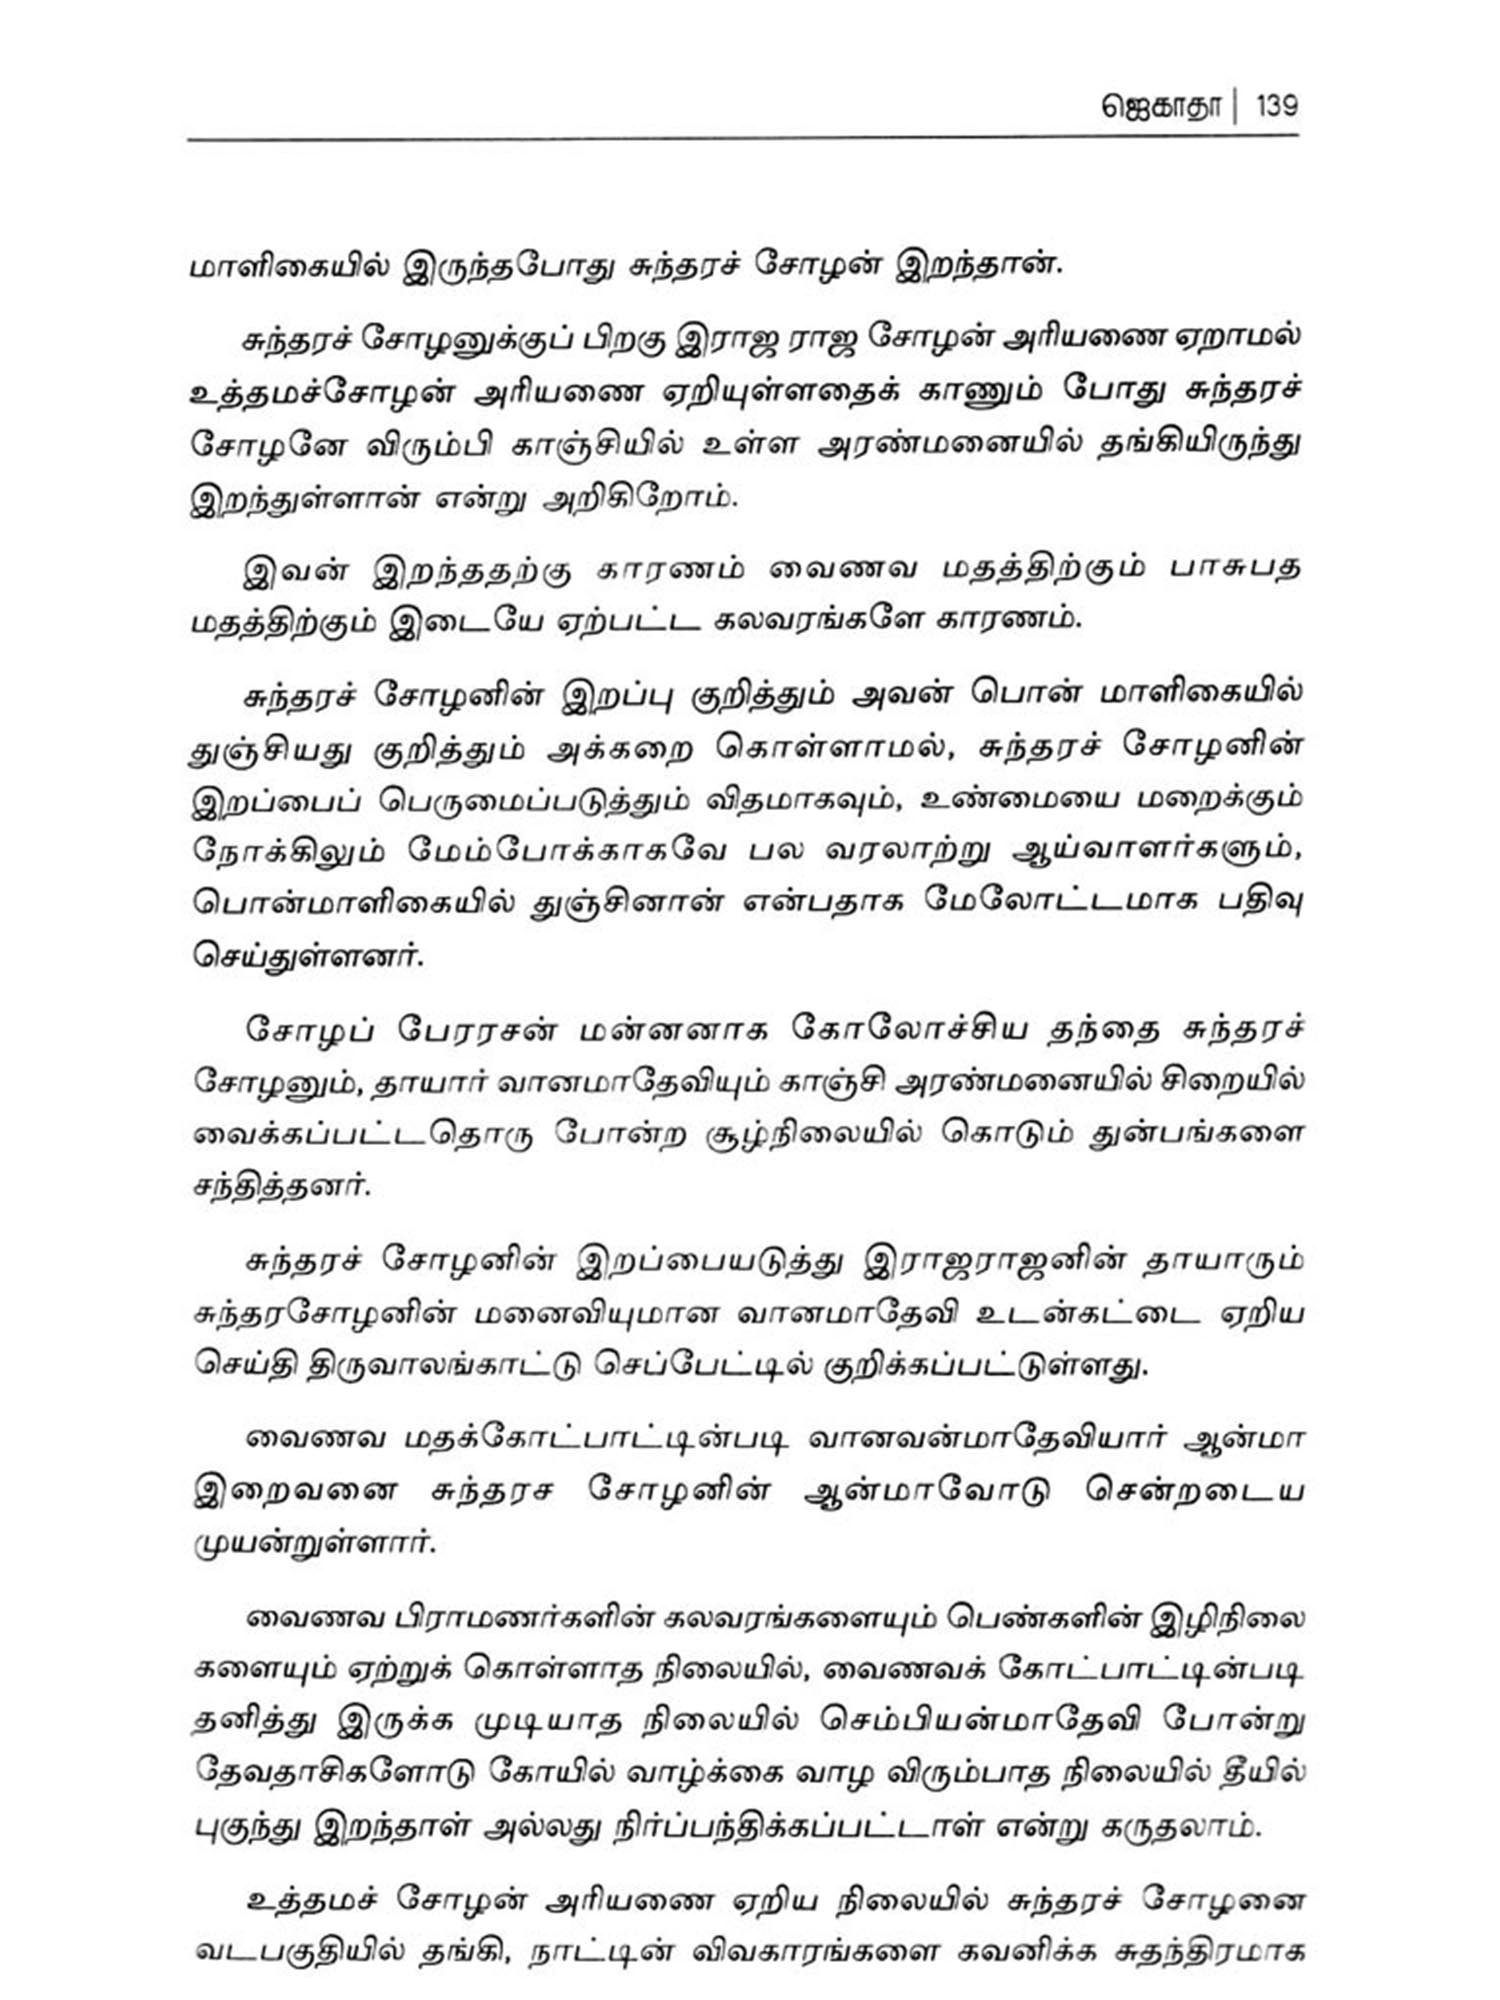 ஜெகாதா | 139
மாளிகையில் இருந்தபோது சுந்தரச் சோழன் இறந்தான்.
சுந்தரச் சோழனுக்குப் பிறகு இராஜ ராஜ சோழன் அரியணை ஏறாமல்
உத்தமச்சோழன் அரியணை ஏறியுள்ளதைக் காணும் போது சுந்தரச்
சோழனே விரும்பி காஞ்சியில் உள்ள அரண்மனையில் தங்கியிருந்து
இறந்துள்ளான் என்று அறிகிறோம்.
இவன் இறந்ததற்கு காரணம் வைணவ மதத்திற்கும் பாசுபத
மதத்திற்கும் இடையே ஏற்பட்ட கலவரங்களே காரணம்.
சுந்தரச் சோழனின் இறப்பு குறித்தும் அவன் பொன் மாளிகையில்
துஞ்சியது குறித்தும் அக்கறை கொள்ளாமல், சுந்தரச் சோழனின்
இறப்பைப் பெருமைப்படுத்தும் விதமாகவும், உண்மையை மறைக்கும்
நோக்கிலும் மேம்போக்காகவே பல வரலாற்று ஆய்வாளர்களும்,
பொன்மாளிகையில் துஞ்சினான் என்பதாக மேலோட்டமாக பதிவு
செய்துள்ளனர்.
சோழப் பேரரசன் மன்னனாக கோலோச்சிய தந்தை சுந்தரச்
சோழனும், தாயார் வானமாதேவியும் காஞ்சி அரண்மனையில் சிறையில்
வைக்கப்பட்டதொரு போன்ற சூழ்நிலையில் கொடும் துன்பங்களை
சந்தித்தனர்.
சுந்தரச் சோழனின் இறப்பையடுத்து இராஜராஜனின் தாயாரும்
சுந்தரசோழனின் மனைவியுமான வானமாதேவி உடன்கட்டை ஏறிய
செய்தி திருவாலங்காட்டு செப்பேட்டில் குறிக்கப்பட்டுள்ளது.
வைணவ மதக்கோட்பாட்டின்படி வானவன்மாதேவியார் ஆன்மா
இறைவனை சுந்தரச சோழனின் ஆன்மாவோடு சென்றடைய
முயன்றுள்ளார்.
வைணவ பிராமணர்களின் கலவரங்களையும் பெண்களின் இழிநிலை
களையும் ஏற்றுக் கொள்ளாத நிலையில், வைணவக் கோட்பாட்டின்படி
தனித்து இருக்க முடியாத நிலையில் செம்பியன்மாதேவி போன்று
தேவதாசிகளோடு கோயில் வாழ்க்கை வாழ விரும்பாத நிலையில் தீயில்
புகுந்து இறந்தாள் அல்லது நிர்ப்பந்திக்கப்பட்டாள் என்று கருதலாம்.
உத்தமச் சோழன் அரியணை ஏறிய நிலையில் சுந்தரச் சோழனை
வடபகுதியில் தங்கி, நாட்டின் விவகாரங்களை கவனிக்க சுதந்திரமாக